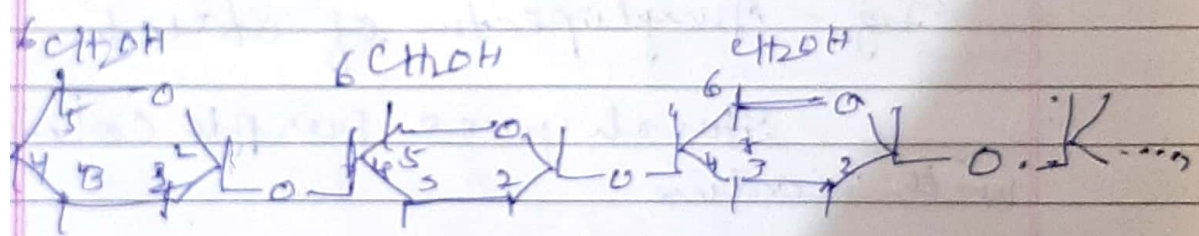 6 CH2OH 6 CH2OH CH2OH
5 O 5 O 6 O
4 3 2 O 4 3 2 O 4 3 2 O